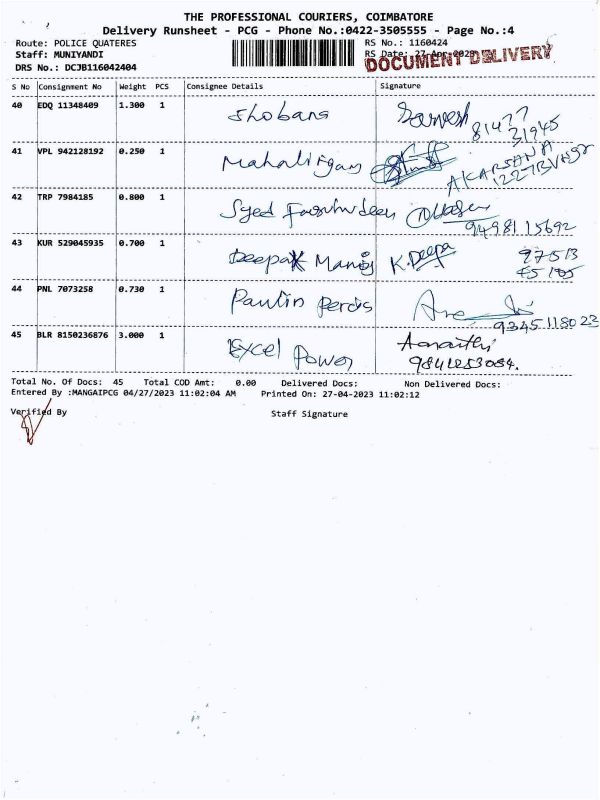 THE PROFESSIONAL COURIERS, COIMBATORE
Delivery Runsheet - PCG - Phone No.:0422-3505555 - Page No.:4
Route: POLICE QUATERES RS No.: 1160424
Staff: MUNIYANDI RS Date: 27-Apr-2023
DRS No.: DCJB116042404 DOCUMENT DELIVERY
S No Consignment No Weight PCS Consignee Details Signature
40 EDQ 11348409 1.300 1 Shobana Sarvesh 81477
31945
41 VPL 942128192 0.250 1 Mahalingam AKARSANA
42 TRP 7984185 0.800 1 Syed
9498115692
43 KUR 529045935 0.700 1 Deepak Manoj K.Deepa 97513
44 PNL 7073258 0.730 1 Paulin
9345118023
45 BLR 8150236876 3.000 1 Excel Power
Total No. Of Docs: 45 Total COD Amt: 0.00 Delivered Docs: Non Delivered Docs:
Entered By :MANGAIPCG 04/27/2023 11:02:04 AM Printed On: 27-04-2023 11:02:12
Verified By Staff Signature